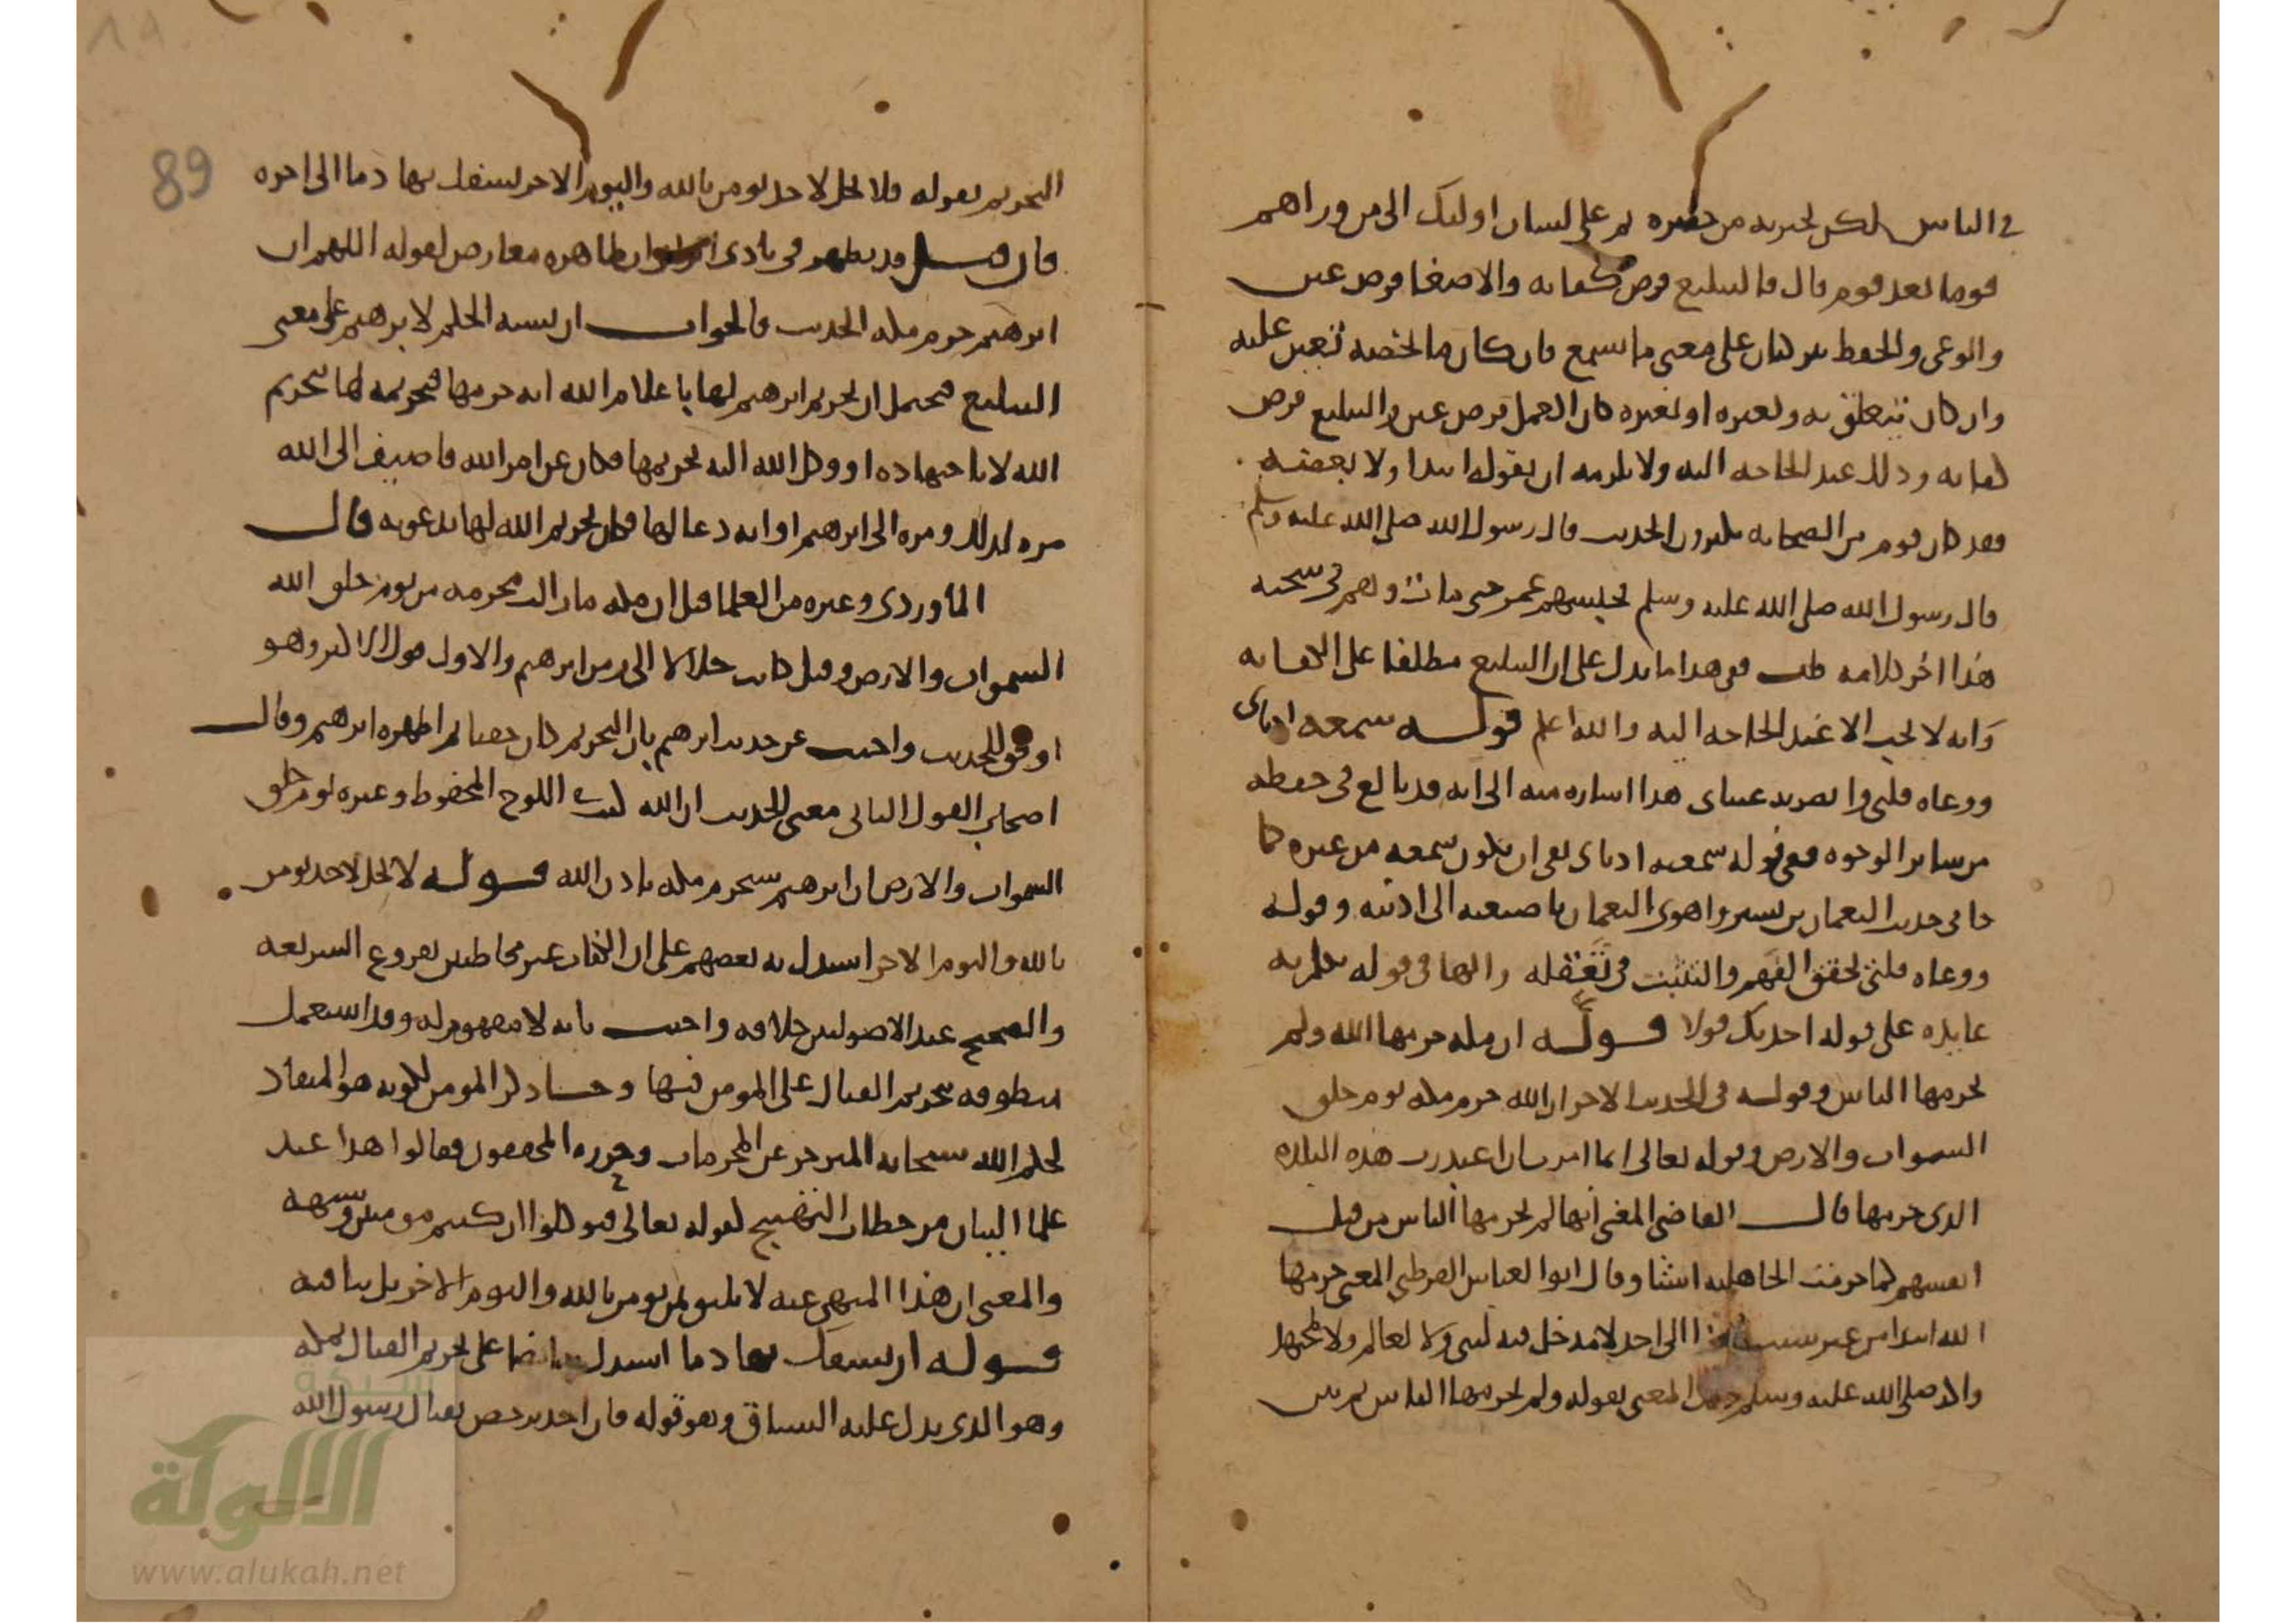 في الناس لكن يخبر به من حضره ثم على لسان اولئك الى من وراهم
قوما بعد قوم قال فالتبليغ فرض كفاية والاصغا فرض عين
والوعى والحفظ يتركبان على معنى ما يسمع فان كان ما يخصه تعين عليه
وان كان يتعلق به وبغيره او بغيره كان العمل فرض عين والتبليغ فرض
كفاية وذلك عند الحاجة اليه ولا يلزمه ان يقوله ابتدا ولا بعضه
فقد كان قوم من الصحابة يكثرون الحديث قال رسول الله صلى الله عليه وسلم
قال رسول الله صلى الله عليه وسلم فحبسهم عمر حتى مات وهم في سجنه
هذا اخر كلامه قلت ففى هذا ما يدل على ان التبليغ مطلقا على الكفاية
وانه لا يجب الا عند الحاجة اليه والله اعلم قوله سمعه اذناى
ووعاه قلبى وابصرته عيناى هذا اشارة منه الى انه قد بالغ فى حفظه
من ساير الوجوه ففى قوله سمعته اذناى نفى ان يكون سمعه من غيره كما
جا فى حديث النعمان بن بشير واهوى النعمان باصبعيه الى اذنيه وقوله
ووعاه قلبى تحقق الفهم والتثبت فى تعقله والها فى قوله تكلم به
عايدة على قوله احدثك قولا قوله ان مكة حرمها الله ولم
يحرمها الناس وقوله فى الحديث الاخر ان الله حرم مكة يوم خلق
السموات والارض وقوله تعالى انما امرت ان اعبد رب هذه البلدة
الذى حرمها قال القاضى المغنى انها لم يحرمها الناس من قبل
انفسهم كما حرمت الجاهلية اشيا وقال ابوا لعباس القرطبى المعنى حرمها
الله ابتدا من غير سبب الى احد لا مدخل فيه لنبى ولا لعالم ولا لمجتهد
والد صلى الله عليه وسلم المعنى بقوله ولم يحرمها الناس ثم بين
89
التحريم بقوله فلا يحل لاحد يومن بالله واليوم الاخر يسفك بها دما الى اخره
فان قيل قد يظهر فى بادى ان ظاهره معارض لقوله اللهم ان
ابرهيم حرم مكة الحديث فالجواب ان نسبة الحكم لابرهيم على معنى
التبليغ فيحتمل ان تحريم ابرهيم لها با علام الله انه حرمها فتحريمه لها بتحريم
الله لا باجتهاده او وكل الله اليه تحريمها فكان عن امر الله فاضيف الى الله
مرة لذلك ومرة الى ابرهيم او انه دعا لها فكان تحريم الله لها بدعوته قال
الماوردى وغيره من العلما قيل ان مكة ما زالت محرمة من يوم خلق الله
السموات والارض وقيل كانت حلالا الى زمن ابرهيم والاول قول الاكثر وهو
اوفق للحديث واجيب عن حديث ابرهيم بان التحريم كان خفيا ثم اظهره ابرهيم وقال
اصحاب القول الثانى معنى الحديث ان الله كتب فى اللوح المحفوظ وغيره يوم خلق
السموات والارض ان ابرهيم سيحرم مكة باذن الله قوله لا يحل لاحد يومن
بالله واليوم الاخر استدل به بعضهم على ان الكفار غير مخاطبين بفروع الشريعة
والصحيح عند الاصوليين خلافه واجيب بانه لا مفهوم له وقد استعمل
منطوقه بتحريم القتال على المومن فيها و ذكر المومن لكونه هو المنقاد
لحكم الله سبحانه المنزجر عن المحرمات وحرره المحققون فقالوا هذا عند
علما البيان من خطاب التهييج لقوله تعالى فتوكلوا ان كنتم مومنين وشبهه
والمعنى ان هذا المنهى عنه لا يليق بمن يومن بالله واليوم الاخر بل ينافيه
قوله ان يسفك بها دما استدل به ايضا على تحريم القتال بمكة
وهو الذى يدل عليه السياق وهو قوله فان احد ترخص بقتال رسول الله
شبكة
الألوكة
www.alukah.net